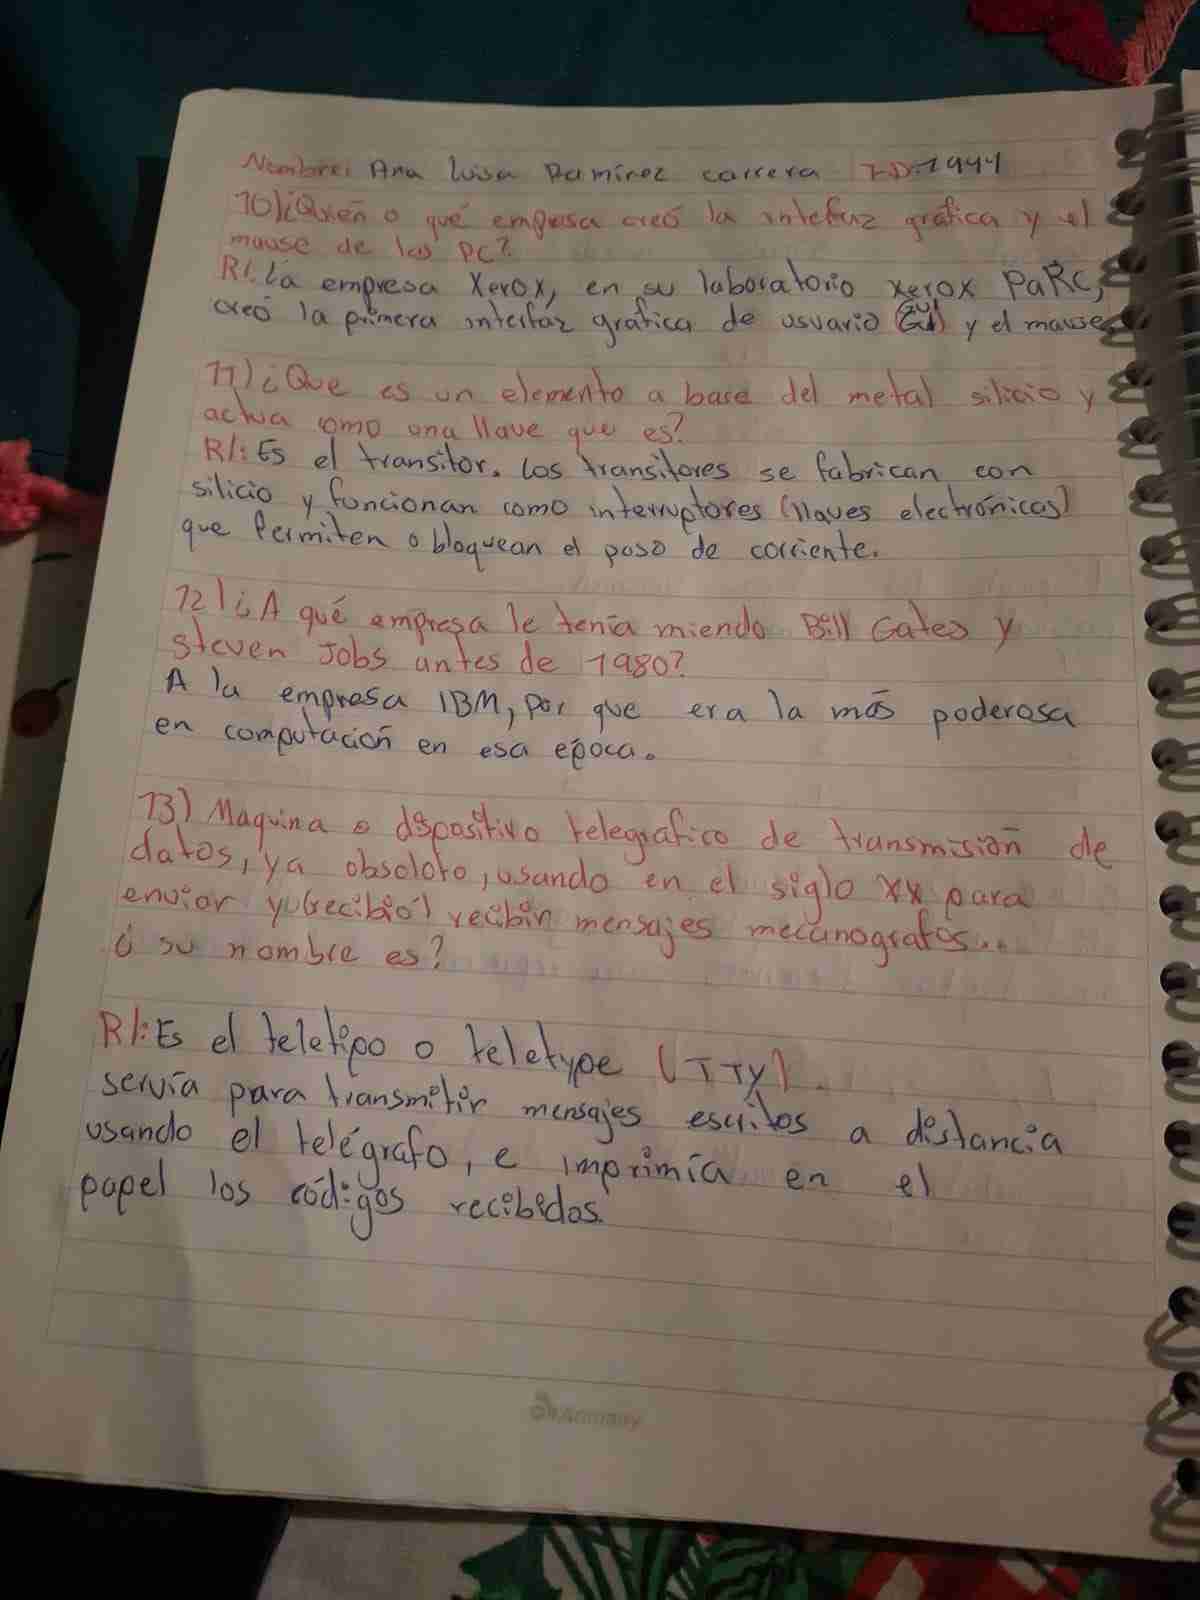 Nombre: Ana Luisa Ramírez carrera I.D:1944
10)¿Quién o qué empresa creó la intefuz gráfica y el
mause de las PC?
R/: La empresa Xerox, en su laboratorio xerox PaRC,
creó la primera interfaz gráfica de usuario (GUI) y el mause.
11)¿Que es un elemento a base del metal silicio y
actua como una llave que es?
R/: Es el transitor. Los transitores se fabrican con
silicio y funcionan como interruptores (llaves electrónicas)
que Permiten o bloquean el paso de corriente.
12)¿A qué empresa le tenía miendo Bill Gates y
Steven Jobs antes de 1980?
A la empresa IBM, por que era la más poderosa
en computación en esa época.
13) Maquina o dispositivo telegrafico de transmisión de
datos, ya obsoloto, usando en el siglo XX para
envior y (recibió) recibin mensajes mecanografos...
¿ su nombre es?
R/: Es el teletipo o teletype (TTy).
servía para transmitir mensajes escritos a distancia
usando el telégrafo, e imprimía en el
papel los códigos recibidos.